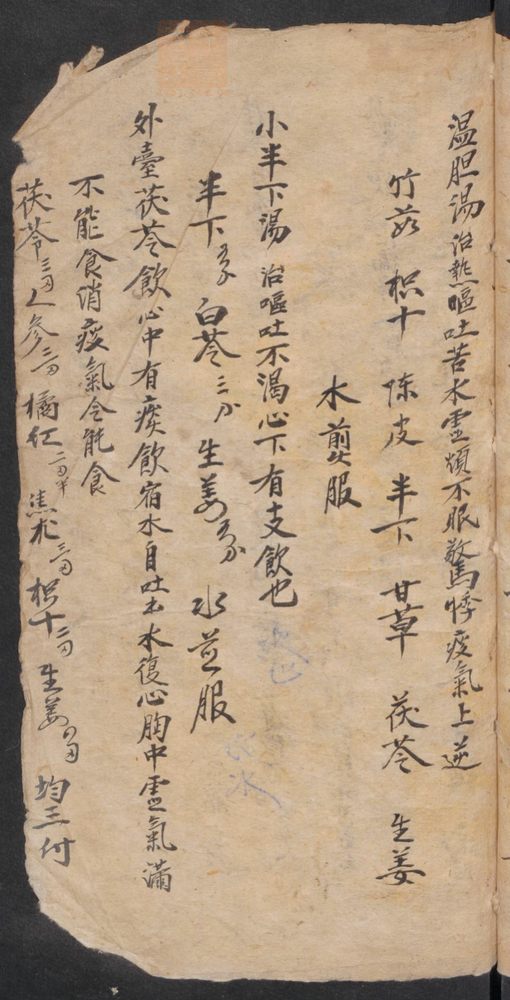 温胆汤 治热嘔吐苦水虚煩不眠驚悸痰氣上逆
竹茹 枳十 陈皮 半下 甘草 茯苓 生姜
水煎服
小半下湯 治嘔吐不渴心下有支飲也
半下 白苓三分 生姜 水煎服
外臺茯苓飲心中有痰飲宿水自吐出水復心胸中虚氣滿
不能食消痰氣令能食
茯苓三 人参三 橘红二 焦术三 枳十二 生姜 均三付